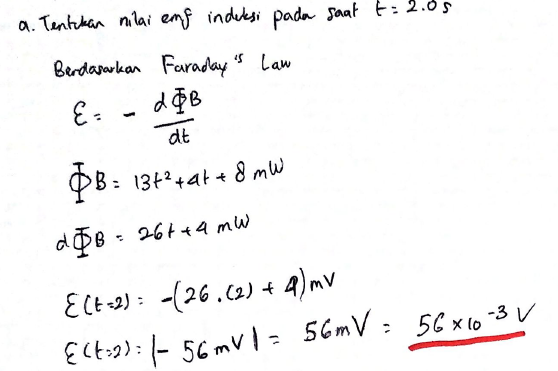 a. Tentukan nilai emf induksi pada saat t = 2.0 s
Berdasarkan Faraday's Law
ε = - dΦB/dt
ΦB = 13t² + 4t + 8 mW
dΦB = 26t + 4 mW
ε(t=2) = -(26.(2) + 4) mV
ε(t=2) = |- 56 mV| = 56 mV = 56 x 10⁻³ V